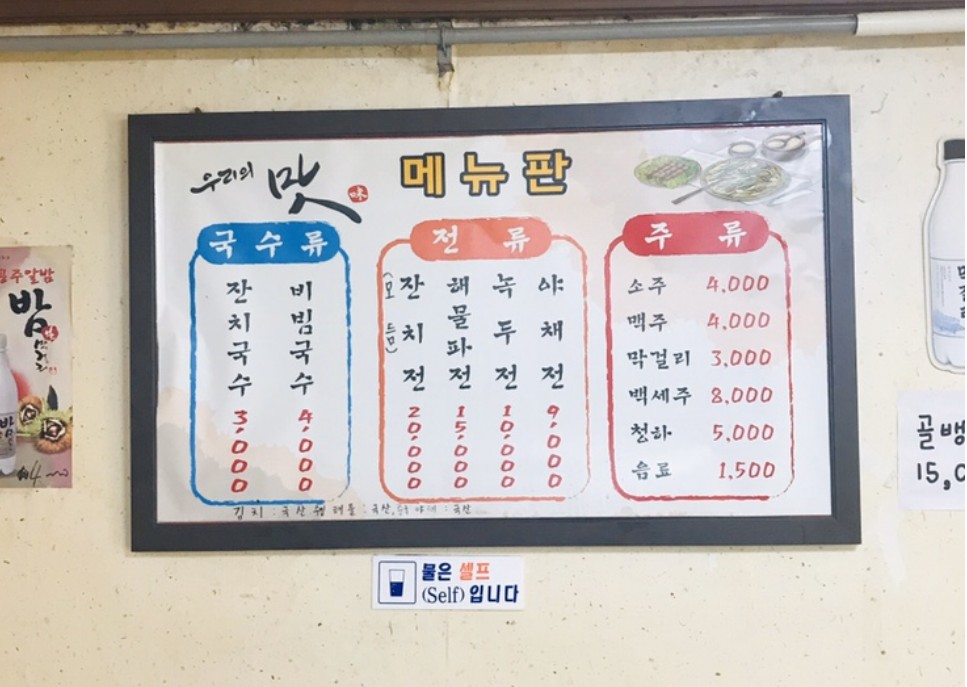 우리의 맛 味
메뉴판
국수류
잔치국수 3,000
비빔국수 4,000
전류
(모듬)잔치전 20,000
해물파전 15,000
녹두전 10,000
야채전 9,000
주류
소주 4,000
맥주 4,000
막걸리 3,000
백세주 8,000
청하 5,000
음료 1,500
김치 : 국산
국산
국산
물은 셀프
(Self) 입니다
알밤
밤
골뱅
15,0